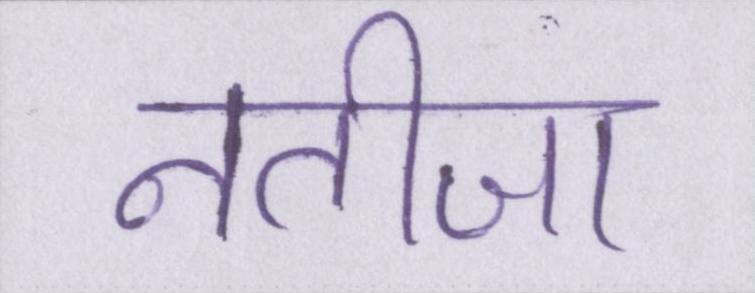 नतीजा